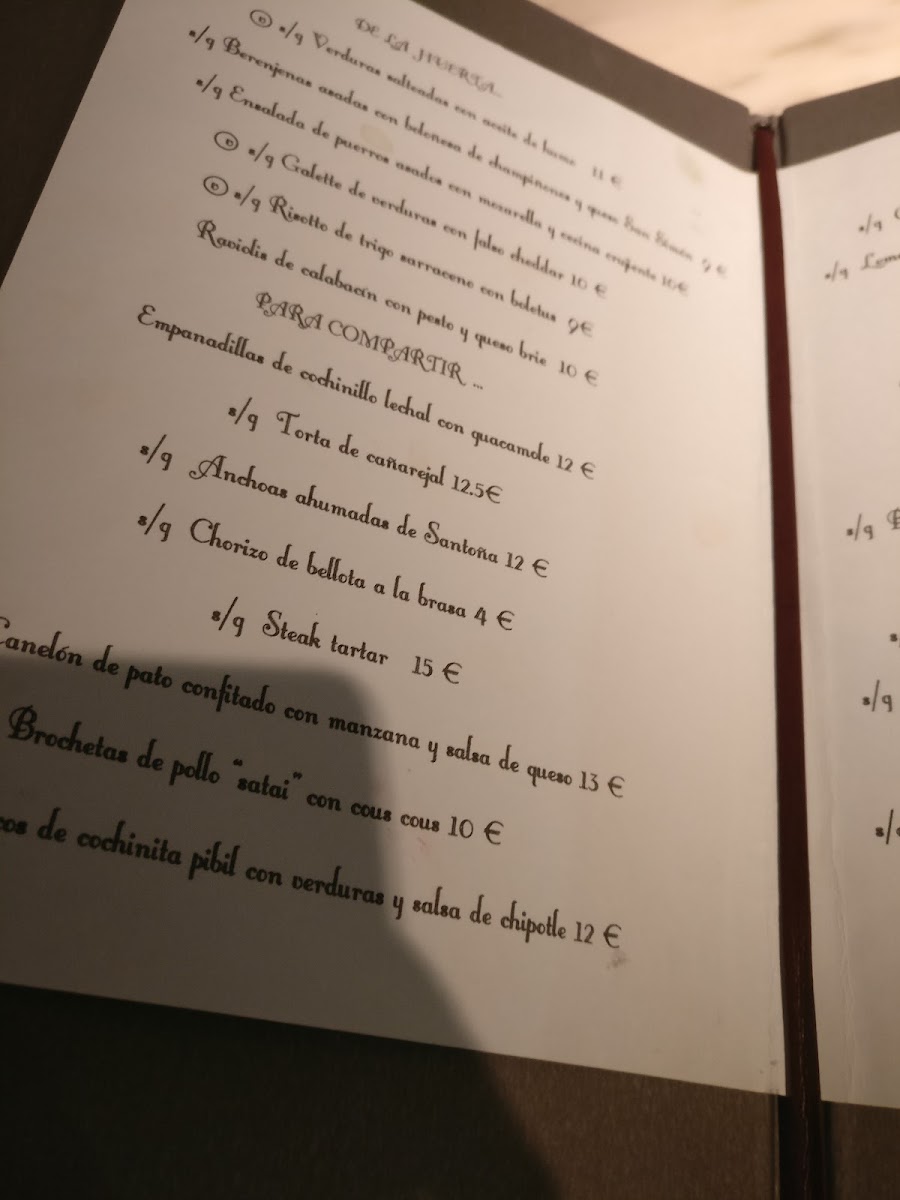 DE LA HUERTA...
ⓥ s/g Verduras salteadas con aceite de humo 11 €
s/g Berenjenas asadas con bolonesa de champiñones y queso San Simón 9 €
s/g Ensalada de puerros asados con mozarella y cecina crujiente 10€
ⓥ s/g Galette de verduras con falso cheddar 10 €
ⓥ s/g Risotto de trigo sarraceno con boletus 9€
Raviolis de calabacín con pesto y queso brie 10 €
PARA COMPARTIR ...
Empanadillas de cochinillo lechal con guacamole 12 €
s/g Torta de cañarejal 12.5€
s/g Anchoas ahumadas de Santoña 12 €
s/g Chorizo de bellota a la brasa 4 €
s/g Steak tartar 15 €
Canelón de pato confitado con manzana y salsa de queso 13 €
Brochetas de pollo "satai" con cous cous 10 €
cos de cochinita pibil con verduras y salsa de chipotle 12 €
s/g
s/g
s/g
s/g